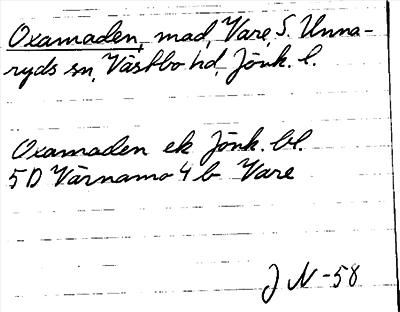 Oxamaden, mad, Vare, S. Unna-
ryds sn, Västbo hd, Jönk. l.
Oxamaden ek Jönk. bl.
5D Värnamo 4 b Vare
J N -58